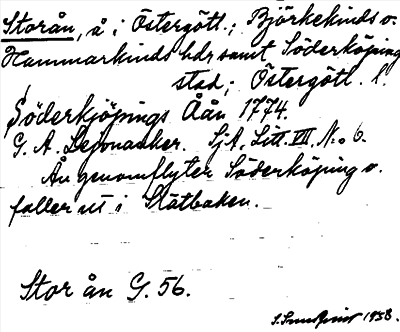 Storån, å i Östergötl.; Björkekinds o.
Hammarkinds hdr samt Söderköping
stad; Östergötl. l.
Söderkjöpings Åån 1774.
G. A. SjA, Litt. VII No 6.
Ån genomflyter Söderköping o.
faller ut i Slätbaken.
Stor ån G. 56.
S. 1958.